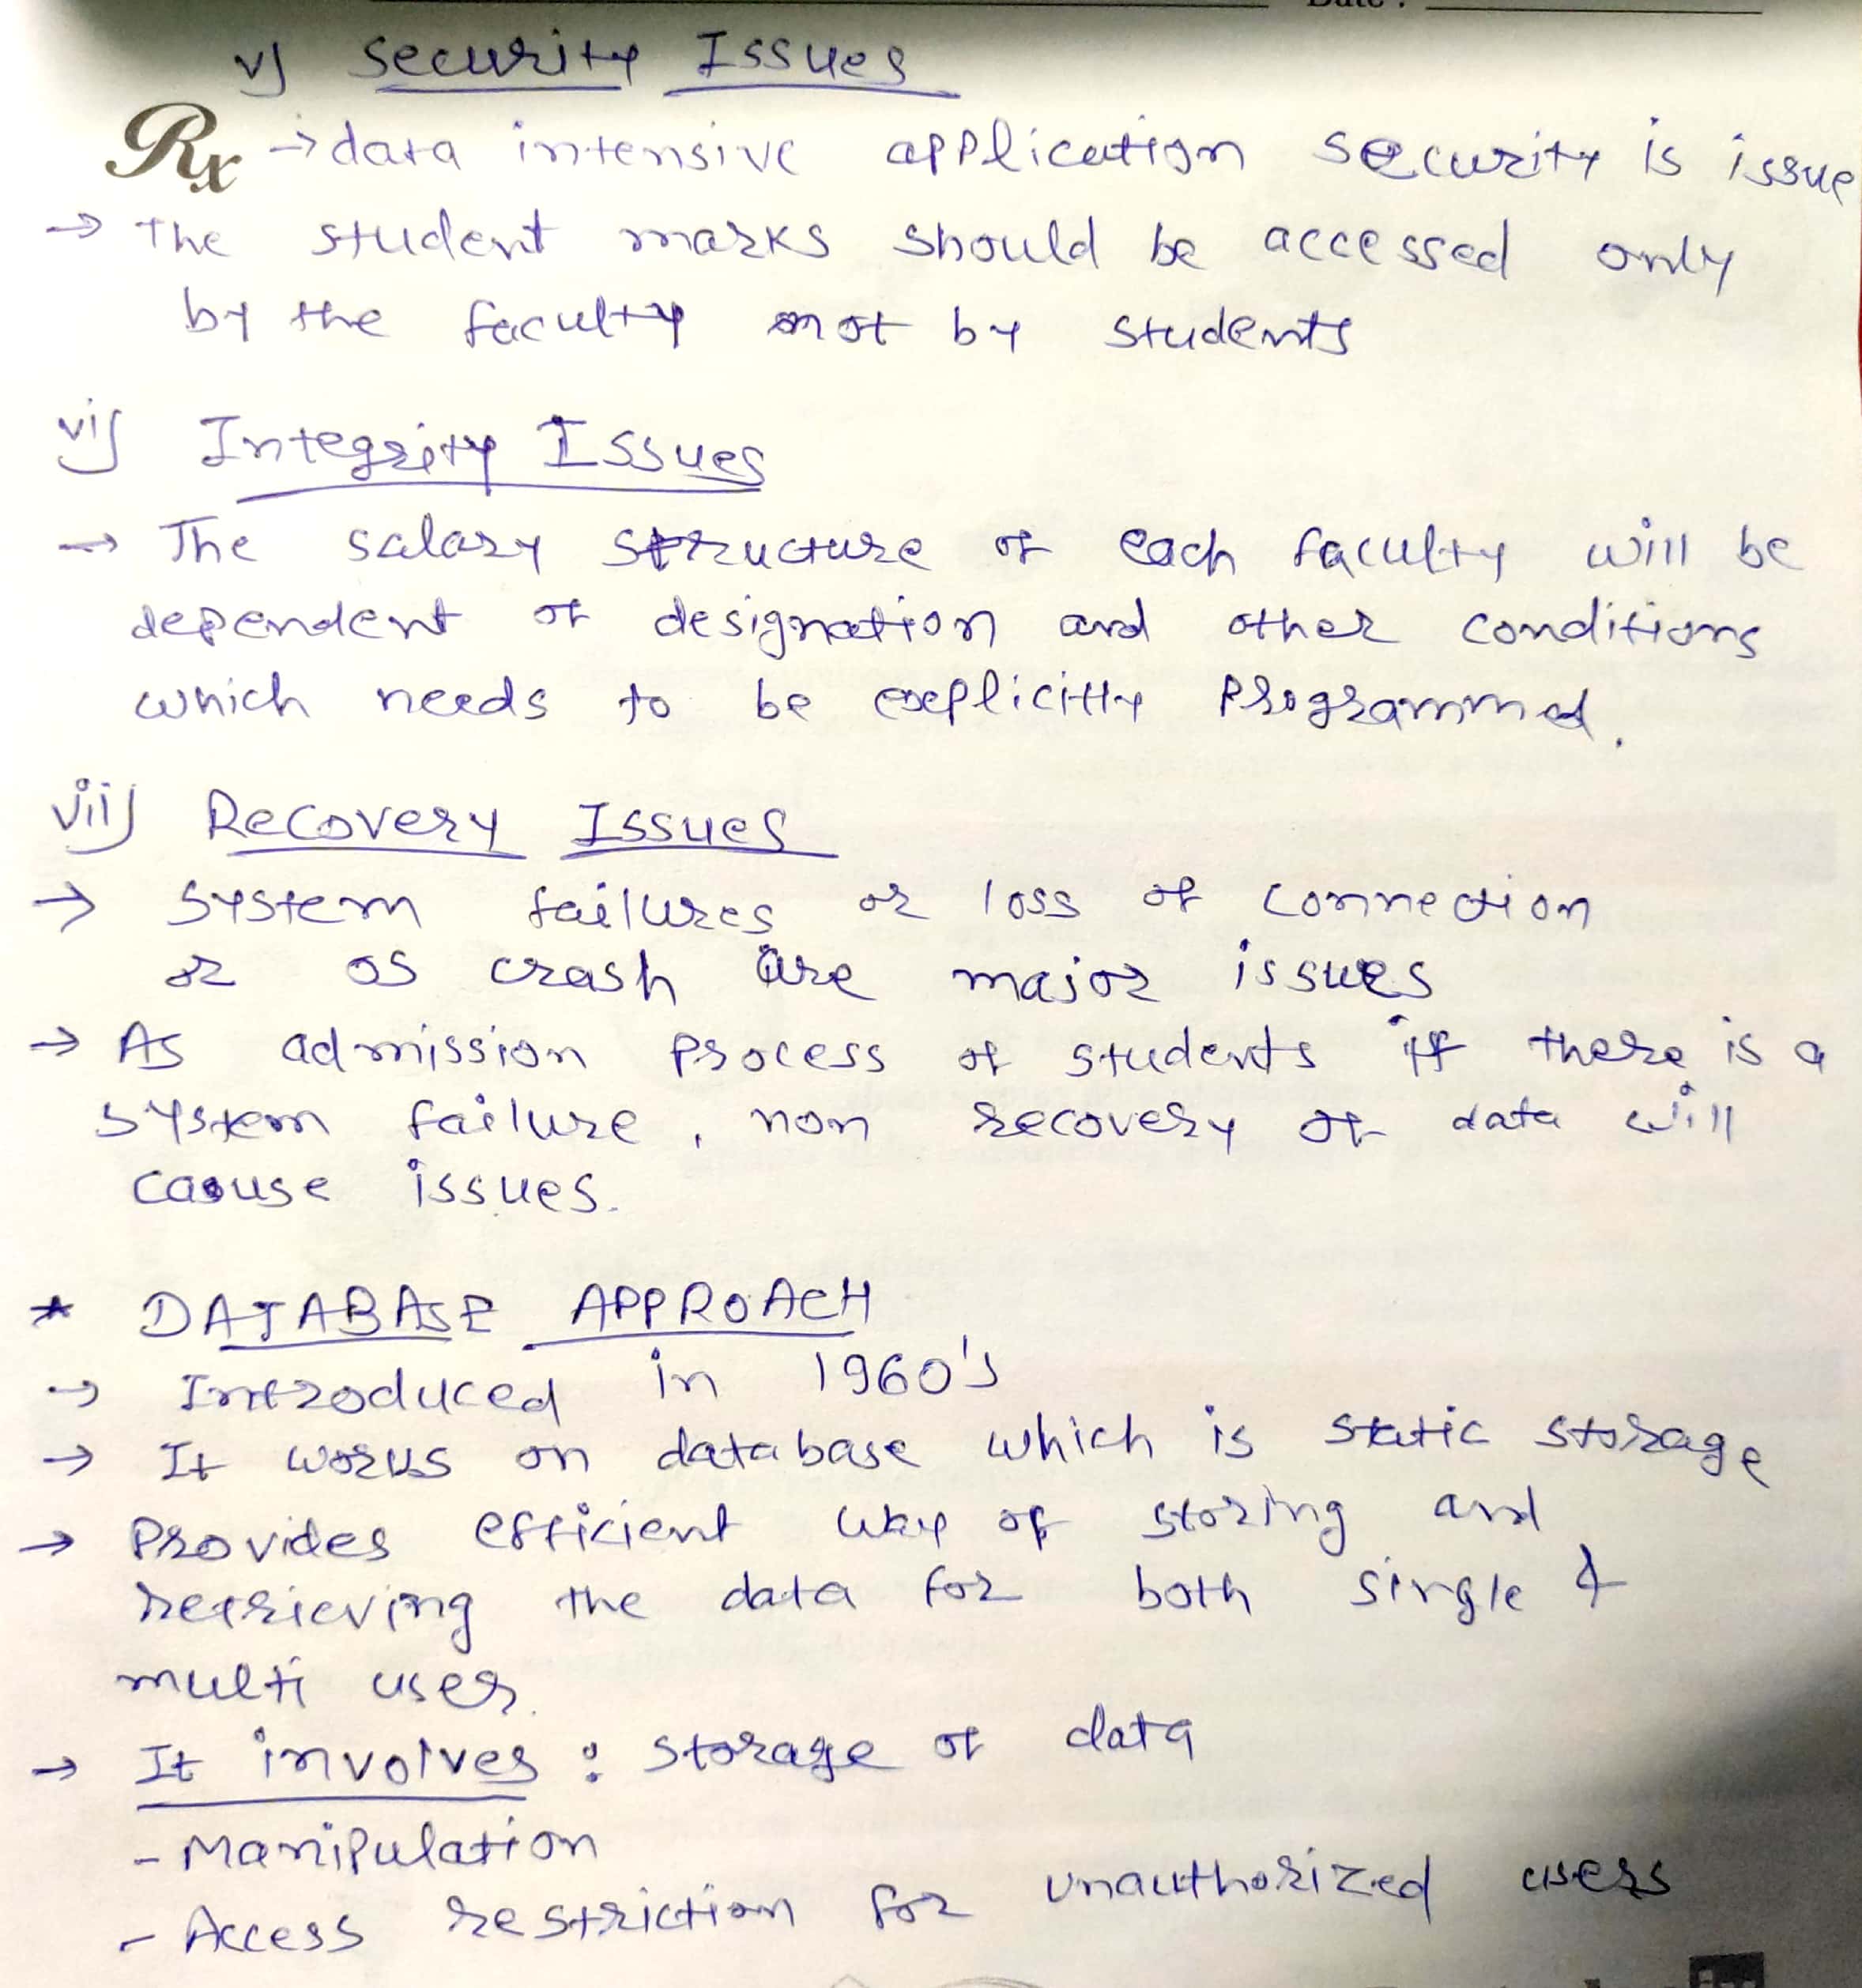 Date :
v) Security Issues
Rx → data intensive application security is issue
→ The student marks should be accessed only
by the faculty not by students
vi) Integrity Issues
→ The salary structure of each faculty will be
dependent of designation and other conditions
which needs to be explicitly programmed.
vii) Recovery Issues
→ System failures or loss of connection
or OS crash are major issues
→ As admission process of students if there is a
system failure, non recovery of data will
cause issues.
* DATABASE APPROACH
→ Introduced in 1960's
→ It works on database which is static storage
→ Provides efficient way of storing and
retrieving the data for both single &
multi user.
→ It involves : storage of data
- Manipulation
- Access restriction for unauthorized users